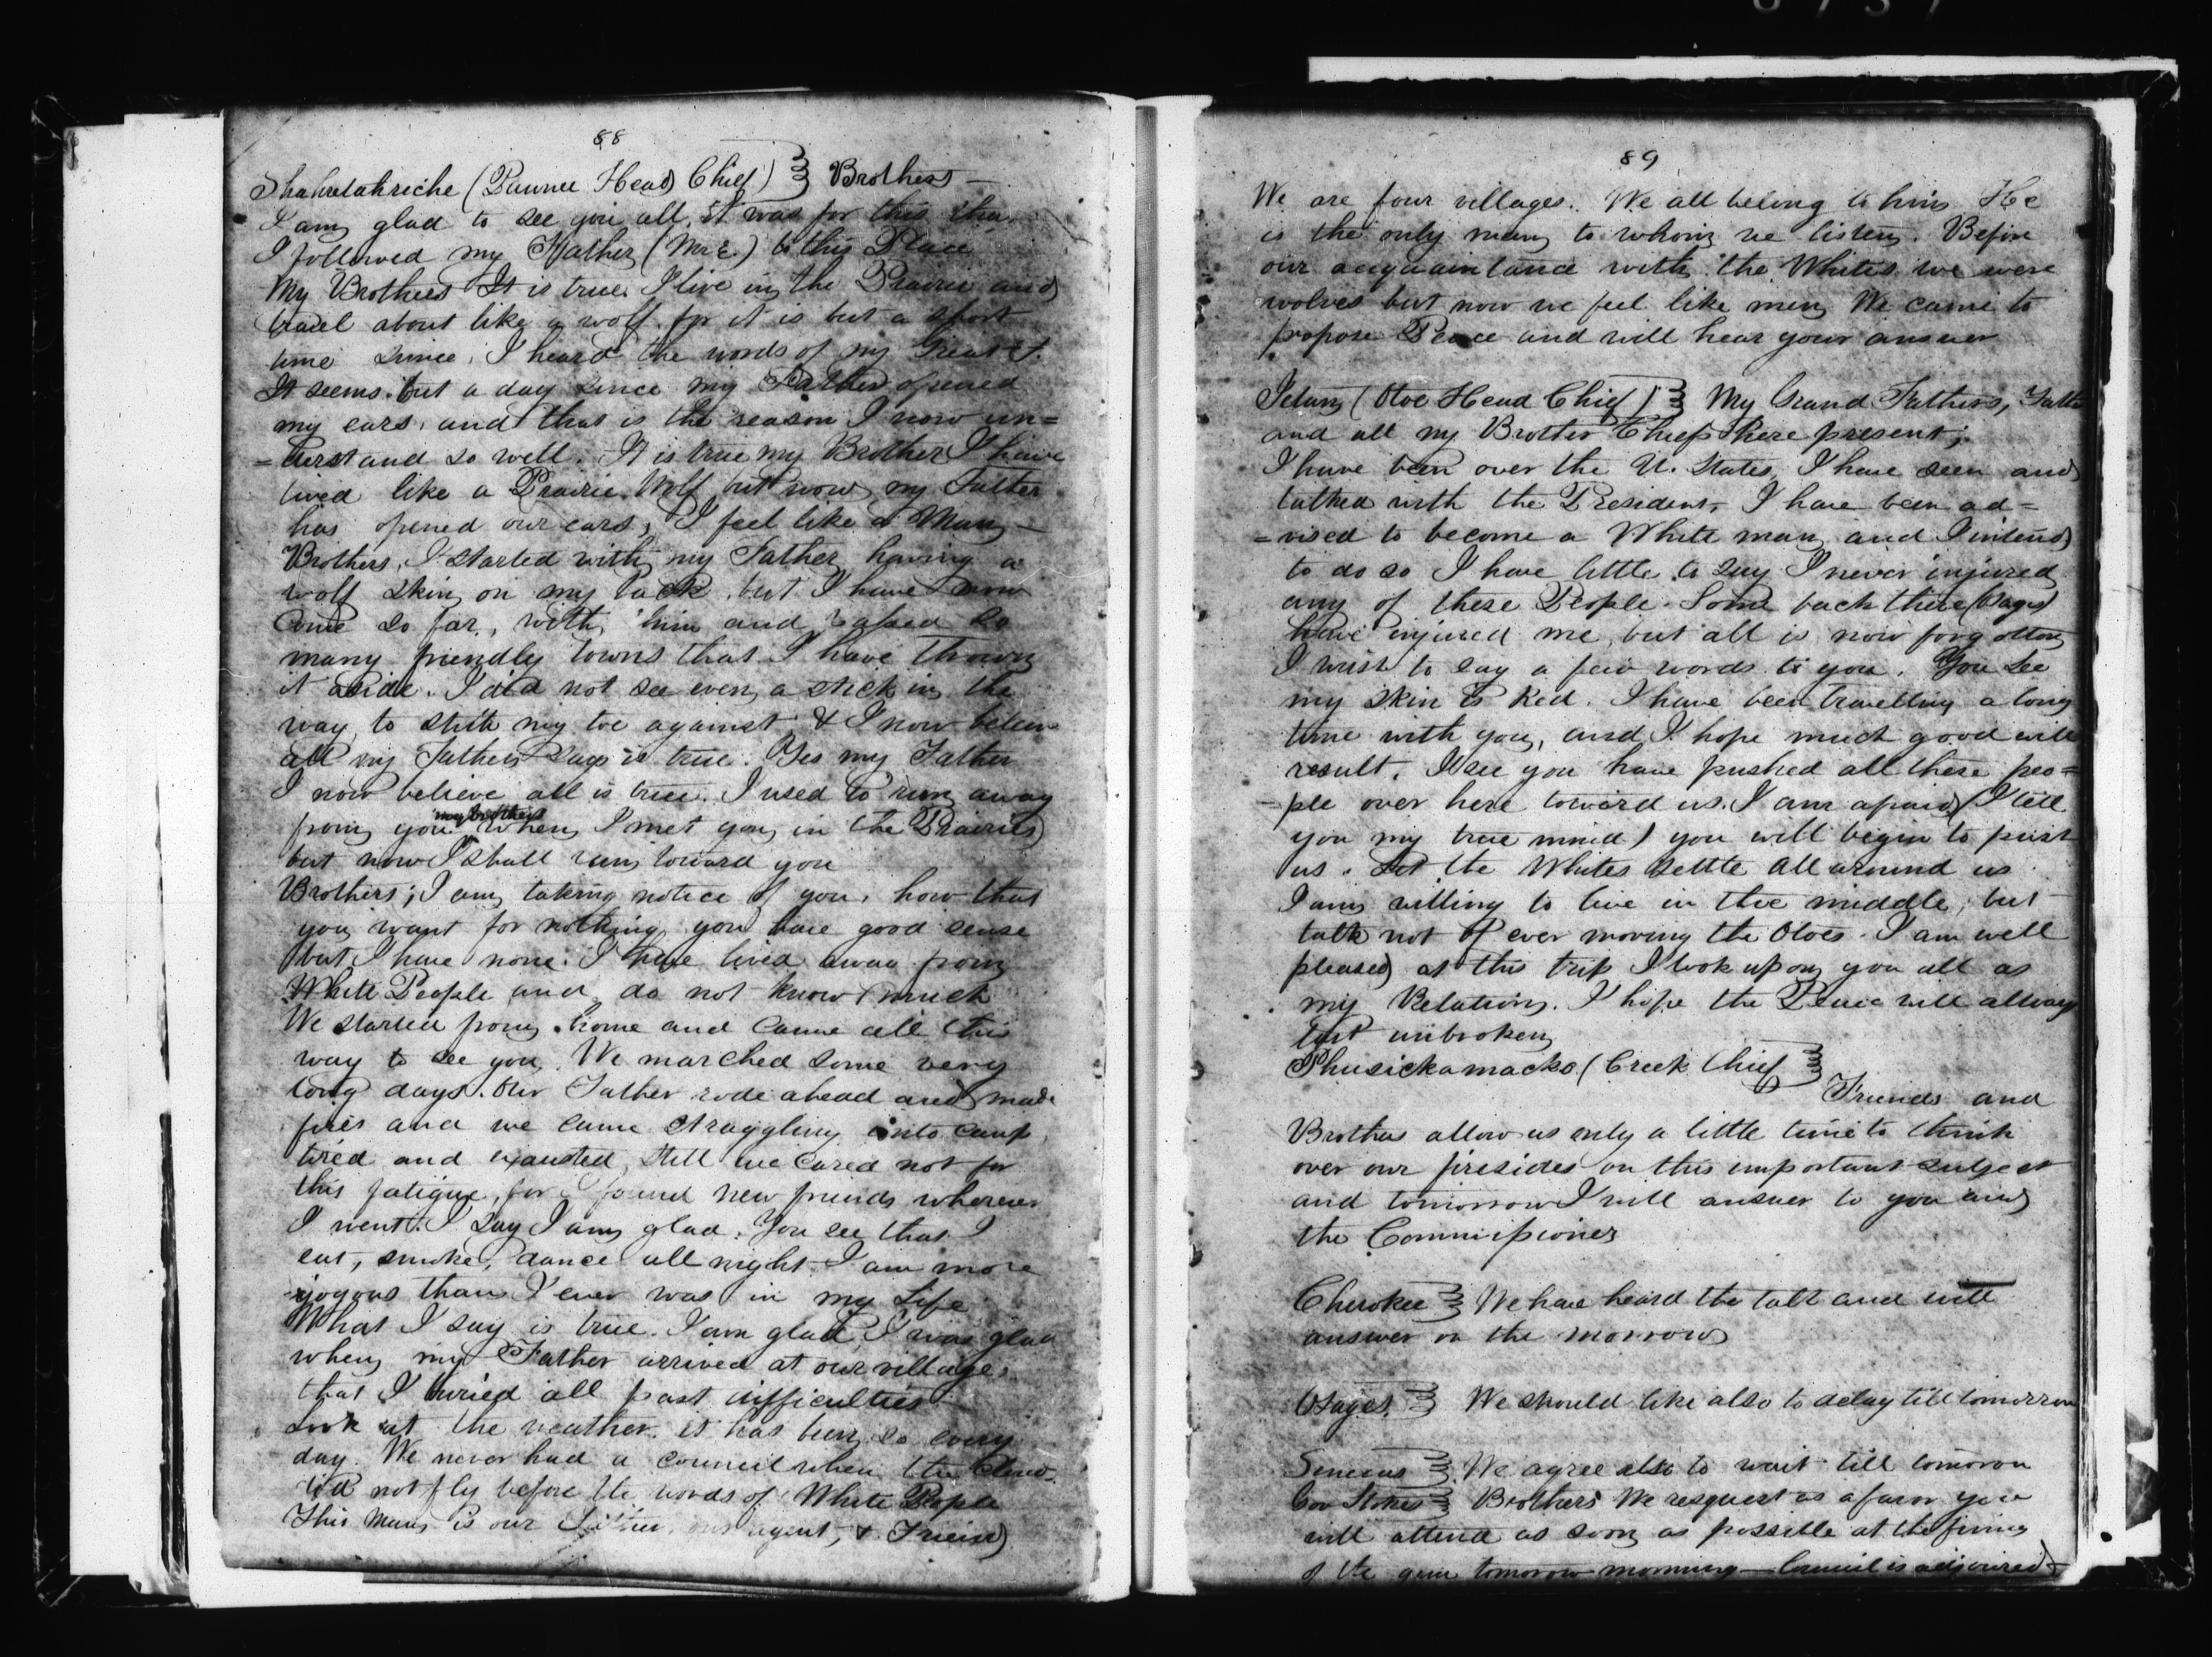 88
Shahrelahriche (Pawnee Head Chief) Brothers —
I am glad to see you all, it was for this that
I followed my Father (Mr E.) to this Place
My Brothers It is true I live in the Prairie and
travel about like a wolf, for it is but a short
time since, I heard the words of my Great F.
It seems but a day since my Father opened
my ears, and that is the reason I now un=
=derstand so well. It is true my Brother I have
lived like a Prairie Wolf but now my Father
has opened our ears, I feel like a Man —
Brothers, I started with my Father having a
wolf skin on my back, but I have now
come so far, with him and passed so
many friendly towns that I have thrown
it aside. I did not see even a stick in the
way to strike my toe against & I now believe
all my Fathers says is true. Yes my Father
I now believe all is true. I used to run away
from you my brothers when I met you in the Prairies
but now I shall run toward you
Brothers; I am taking notice of you, how that
you want for nothing, you have good sense
but I have none. I have lived away from
White People and do not know much
We started from home and came all this
way to see you. We marched some very
long days. Our Father rode ahead and made
fires and we came straggling into camp
tired and exausted, still we cared not for
this fatigue, for I found new friends wherever
I went. I say I am glad. You see that I
eat, smoke, dance all night I am more
joyous than I ever was in my Life
What I say is true. I am glad, I was glad
when my Father arrived at our village,
that I buried all past difficulties
Look at the weather. it has been so every
day. We never had a council when the Clouds
did not fly before the words of White People
This Man is our Father, our agent, & Friend
89
We are four villages. We all belong to him He
is the only man to whom we listen. Before
our acquaintance with the Whites we were
wolves but now we feel like men We came to
propose Peace and will hear your answer
Ietan (Otoe Head Chief) My Grand Fathers, Fath
and all my Brother Chiefs here present;
I have been over the U. States, I have seen and
talked with the President, I have been ad=
=vised to become a White man and I intend
to do so I have little to say I never injured
any of these People. Some back there (Osages)
have injured me, but all is now forgotten
I wish to say a few words to you. You see
my skin is Red. I have been travelling a long
time with you, and I hope much good will
result. I see you have pushed all these peo=
=ple over here toward us. I am afraid (I tell
you my true mind) you will begin to push
us. Let the Whites settle all around us
I am willing to live in the middle, but
talk not of ever moving the Otoes. I am well
pleased at this trip I look upon you all as
my Relations. I hope the Peace will allways
last unbroken
Phusickamacko (Creek Chief
Friends and
Brothers allow us only a little time to think
over our firesides on this important subject
and tomorrow I will answer to you and
the Commissioners
Cherokee We have heard the talk and will
answer on the morrow
Osages. We should like also to delay till tomorrow
Senecas We agree also to wait till tomorow
Gov Stokes Brothers We resquest as a favor you
will attend as soon as possible at the firing
of the gun tomorow morning — Council is adjourned —